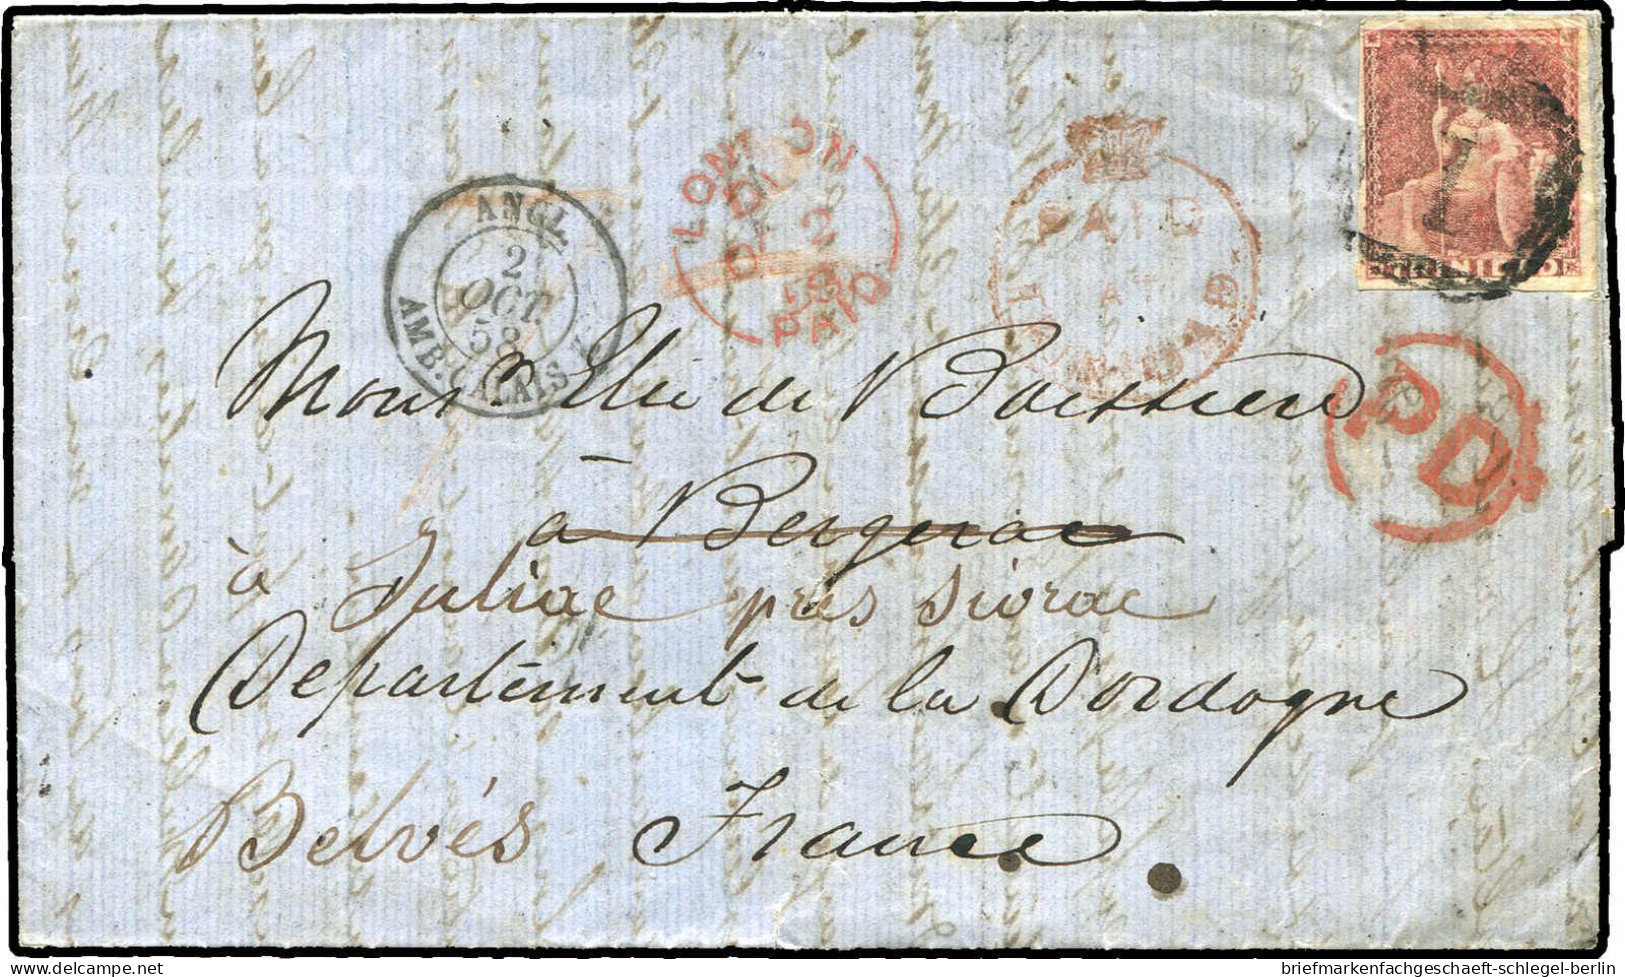 TRINIDAD
1
ANGL.
2
OCT.
58
AMB. CALAIS
LONDON
2
58
PAID
PAID
AT
TRINIDAD
PD
Monsr Elie de Boissiere
à Bergerac
à Juliac près Siorac
Département de la Dordogne
Belvés France
briefmarkenfachgeschaeft-schlegel-berlin